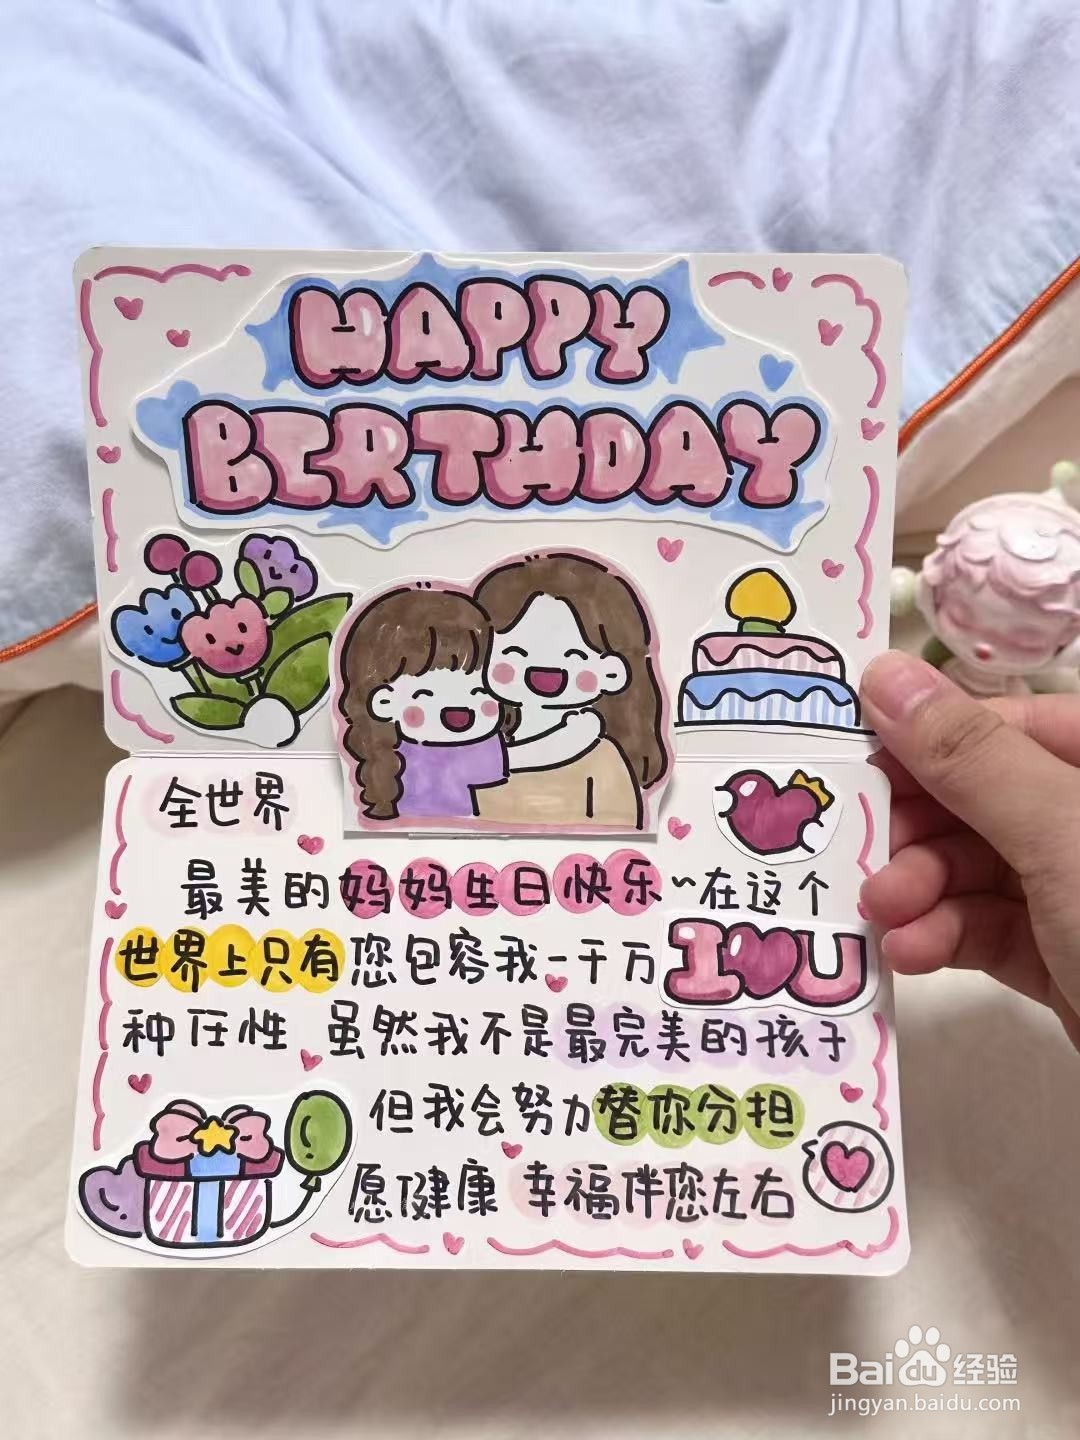 HAPPY
BIRTHDAY
全世界
最美的妈妈生日快乐~在这个
世界上只有您包容我一千万
I U
种任性 虽然我不是最完美的孩子
但我会努力替你分担
愿健康 幸福伴您左右
Baidu经验
jingyan.baidu.com